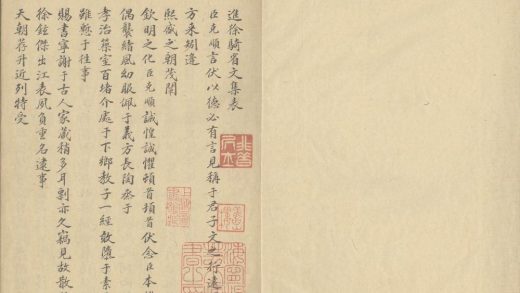 進徐騎省文集表
臣克順言伏以德必有言見稱于君子文之行遠
方来矧遭
熙盛之朝茂闡
欽明之化臣克順誠惶誠懼頓首頓首伏念臣本
偶襲緒風幼服佩于義方長陶烝于
孝治築室百堵介處于下鄉教子一經敢墮于素
雖慙于往事
賜書寧謝于古人家藏稍多耳剽亦久竊見故散
徐鉉傑出江表夙負重名逮事
天朝荐升近列特受